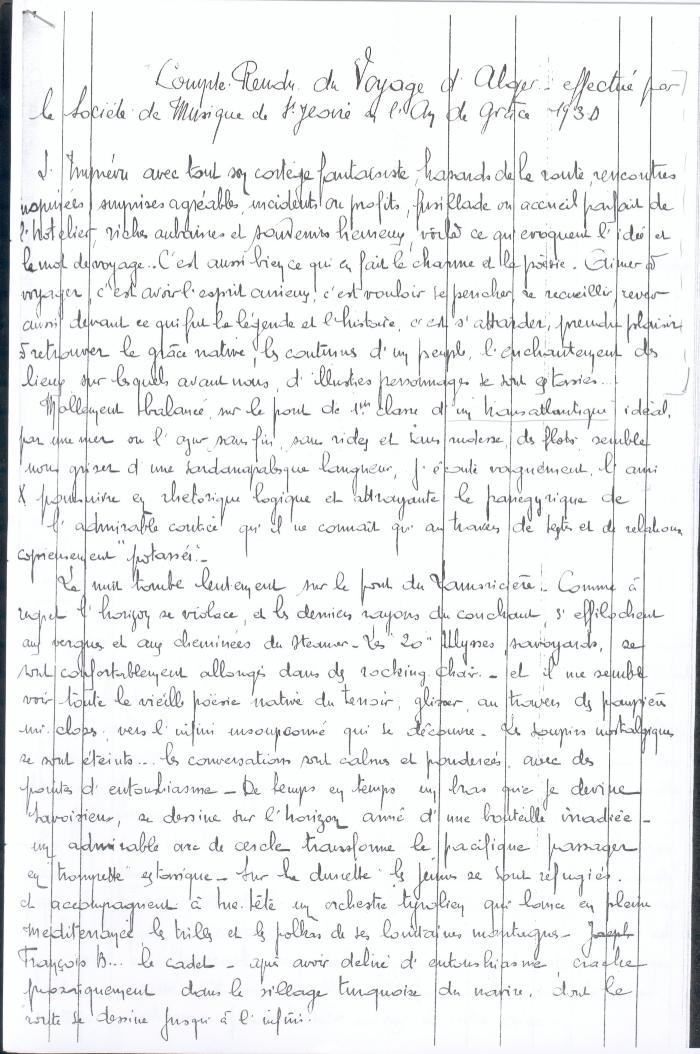 Compte-Rendu du Voyage d'Alger - effectué par
la Société de Musique de St Jeoire en l'An de Grâce 1930
L'Imprévu avec tout son cortège fantaisiste, hasards de la route, rencontres
surprises agréables, incidents ou profits, fusillade ou accueil parfait de
l'hôtelier, riches aubaines et souvenirs heureux, voilà ce qu'évoquent l'idée et
le mot de voyage... C'est aussi bien ce qui en fait le charme et la poësie. Aimer à
voyager, c'est avoir l'esprit curieux, c'est vouloir se pencher se recueillir, rêver
aussi devant ce qui fut la légende et l'histoire, c'est s'attarder, prendre plaisir
à retrouver la grâce native, les coutumes d'un peuple, l'enchantement des
lieux sur lesquels avant nous, d'illustres personnages se sont extasiés...
Mollement balancé, sur le pont de 1ère classe d'un transatlantique idéal,
par une mer ou l'azur sans fin, sans rides et sans mollesse, des flots semble
nous griser d'une sardanapalesque langueur, j'écoute vaguement, l'ami
X poursuivre en rhétorique logique et attrayante le panégyrique de
l'admirable contrée qu'il ne connaît qu'au travers de textes et de relations
copieusement "potassés".-
La nuit tombe lentement sur le pont du Lamoricière. Comme à
regret l'horizon se violace, et les derniers rayons du couchant, s'effilochent
aux vergues et aux cheminées du steamer - Les "20" Ulysses savoyards, se
sont confortablement allongés dans des rocking-chair. - et il me semble
voir toute la vieille poësie native du terroir, glisser, au travers des paupières
mi-closes, vers l'infini insoupçonné qui se découvre. Les soupirs nostalgiques
se sont éteints... les conversations sont calmes et pondérées, avec des
pointes d'enthousiasme - De temps en temps un bras que je devine
savoisien, se dessine sur l'horizon armé d'une bouteille irradiée -
un admirable arc de cercle transforme le pacifique passager
en "trompette" extatique - Sur la dunette les jeunes se sont réfugiés.
et accompagnent à tue-tête un orchestre tyrolien qui lance en pleine
méditerranée les trilles et les polkas de ses lointaines montagnes - Joseph
François B... le cadet - après avoir déliré d'enthousiasme, crache
prosaïquement dans le sillage turquoise du navire, dont la
route se dessine jusqu'à l'infini.